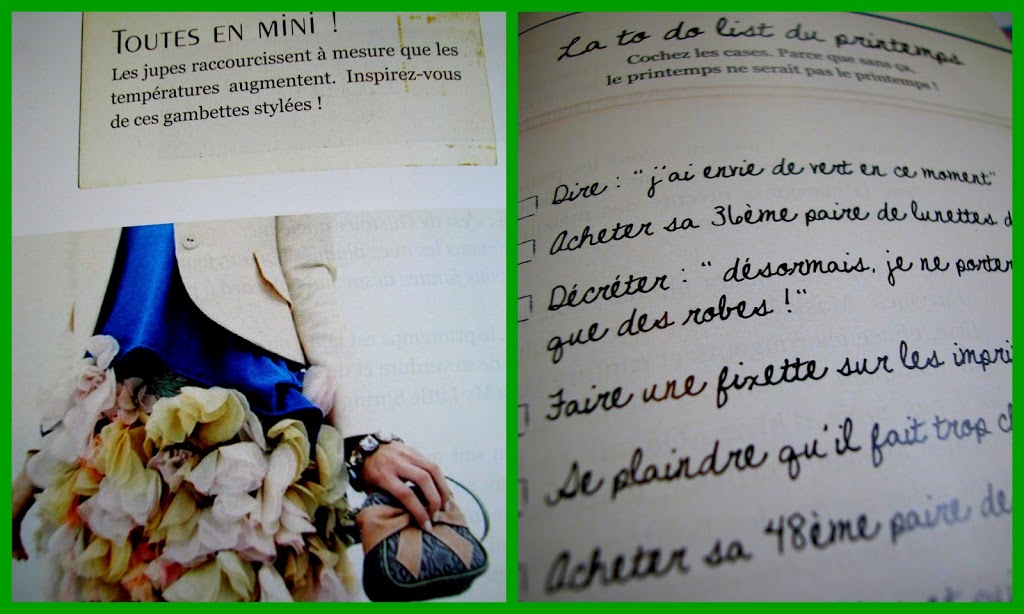 TOUTES EN MINI !
Les jupes raccourcissent à mesure que les
températures augmentent. Inspirez-vous
de ces gambettes stylées !
La to do list du printemps
Cochez les cases. Parce que sans ça,
le printemps ne serait pas le printemps !
Dire : " j'ai envie de vert en ce moment"
Acheter sa 36ème paire de lunettes d
Décréter : " désormais, je ne porter
que des robes !"
Faire une fixette sur les impri
Se plaindre qu'il fait trop c
Acheter sa 48ème paire de